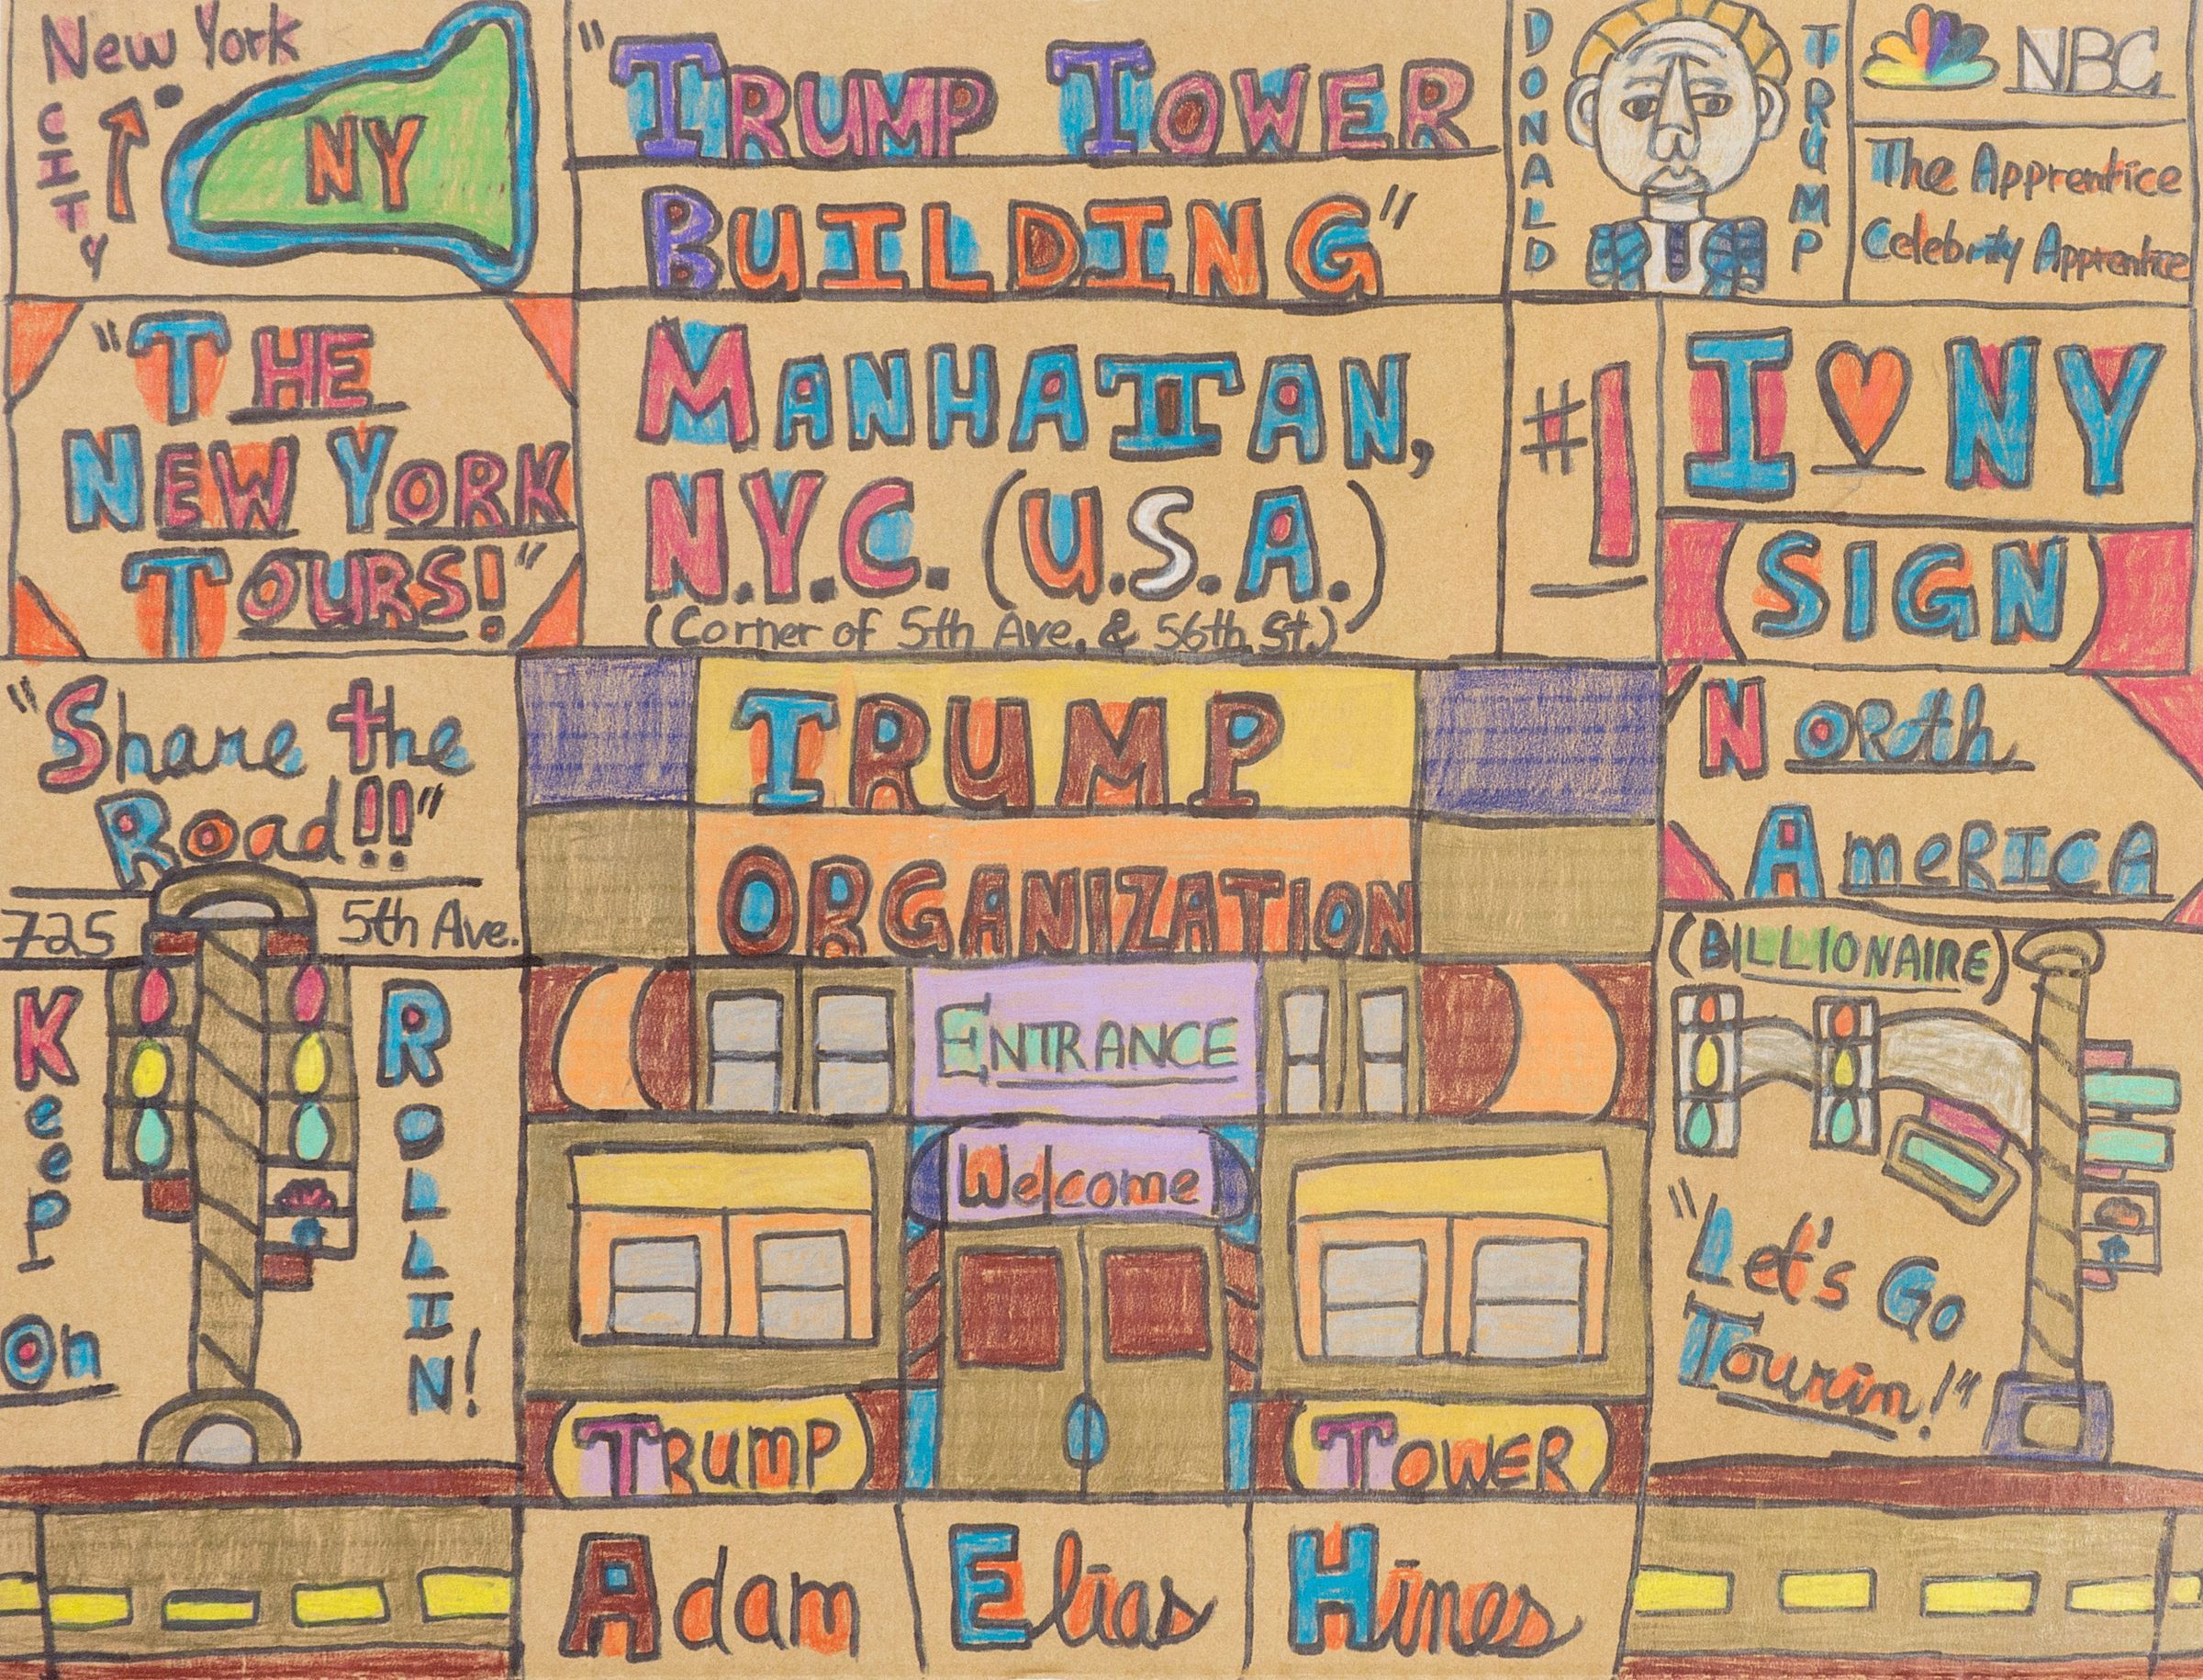 New York
CITY
NY
"TRUMP TOWER
BUILDING"
DONALD
TRUMP
NBC
The Apprentice
Celebrity Apprentice
"THE
NEW YORK
TOURS!"
MANHATTAN,
N.Y.C. (U.S.A.)
(Corner of 5th Ave. & 56th St.)
#1
I ♥ NY
(SIGN)
"Share the
Road!!"
725 5th Ave.
TRUMP
ORGANIZATION
NORth
AmeRICA
(BILLIONAIRE)
KeeP
On
ROLLIN!
ENTRANCE
Welcome
"Let's Go
Tourin!"
TRUMP
TOWER
Adam Elias Hines